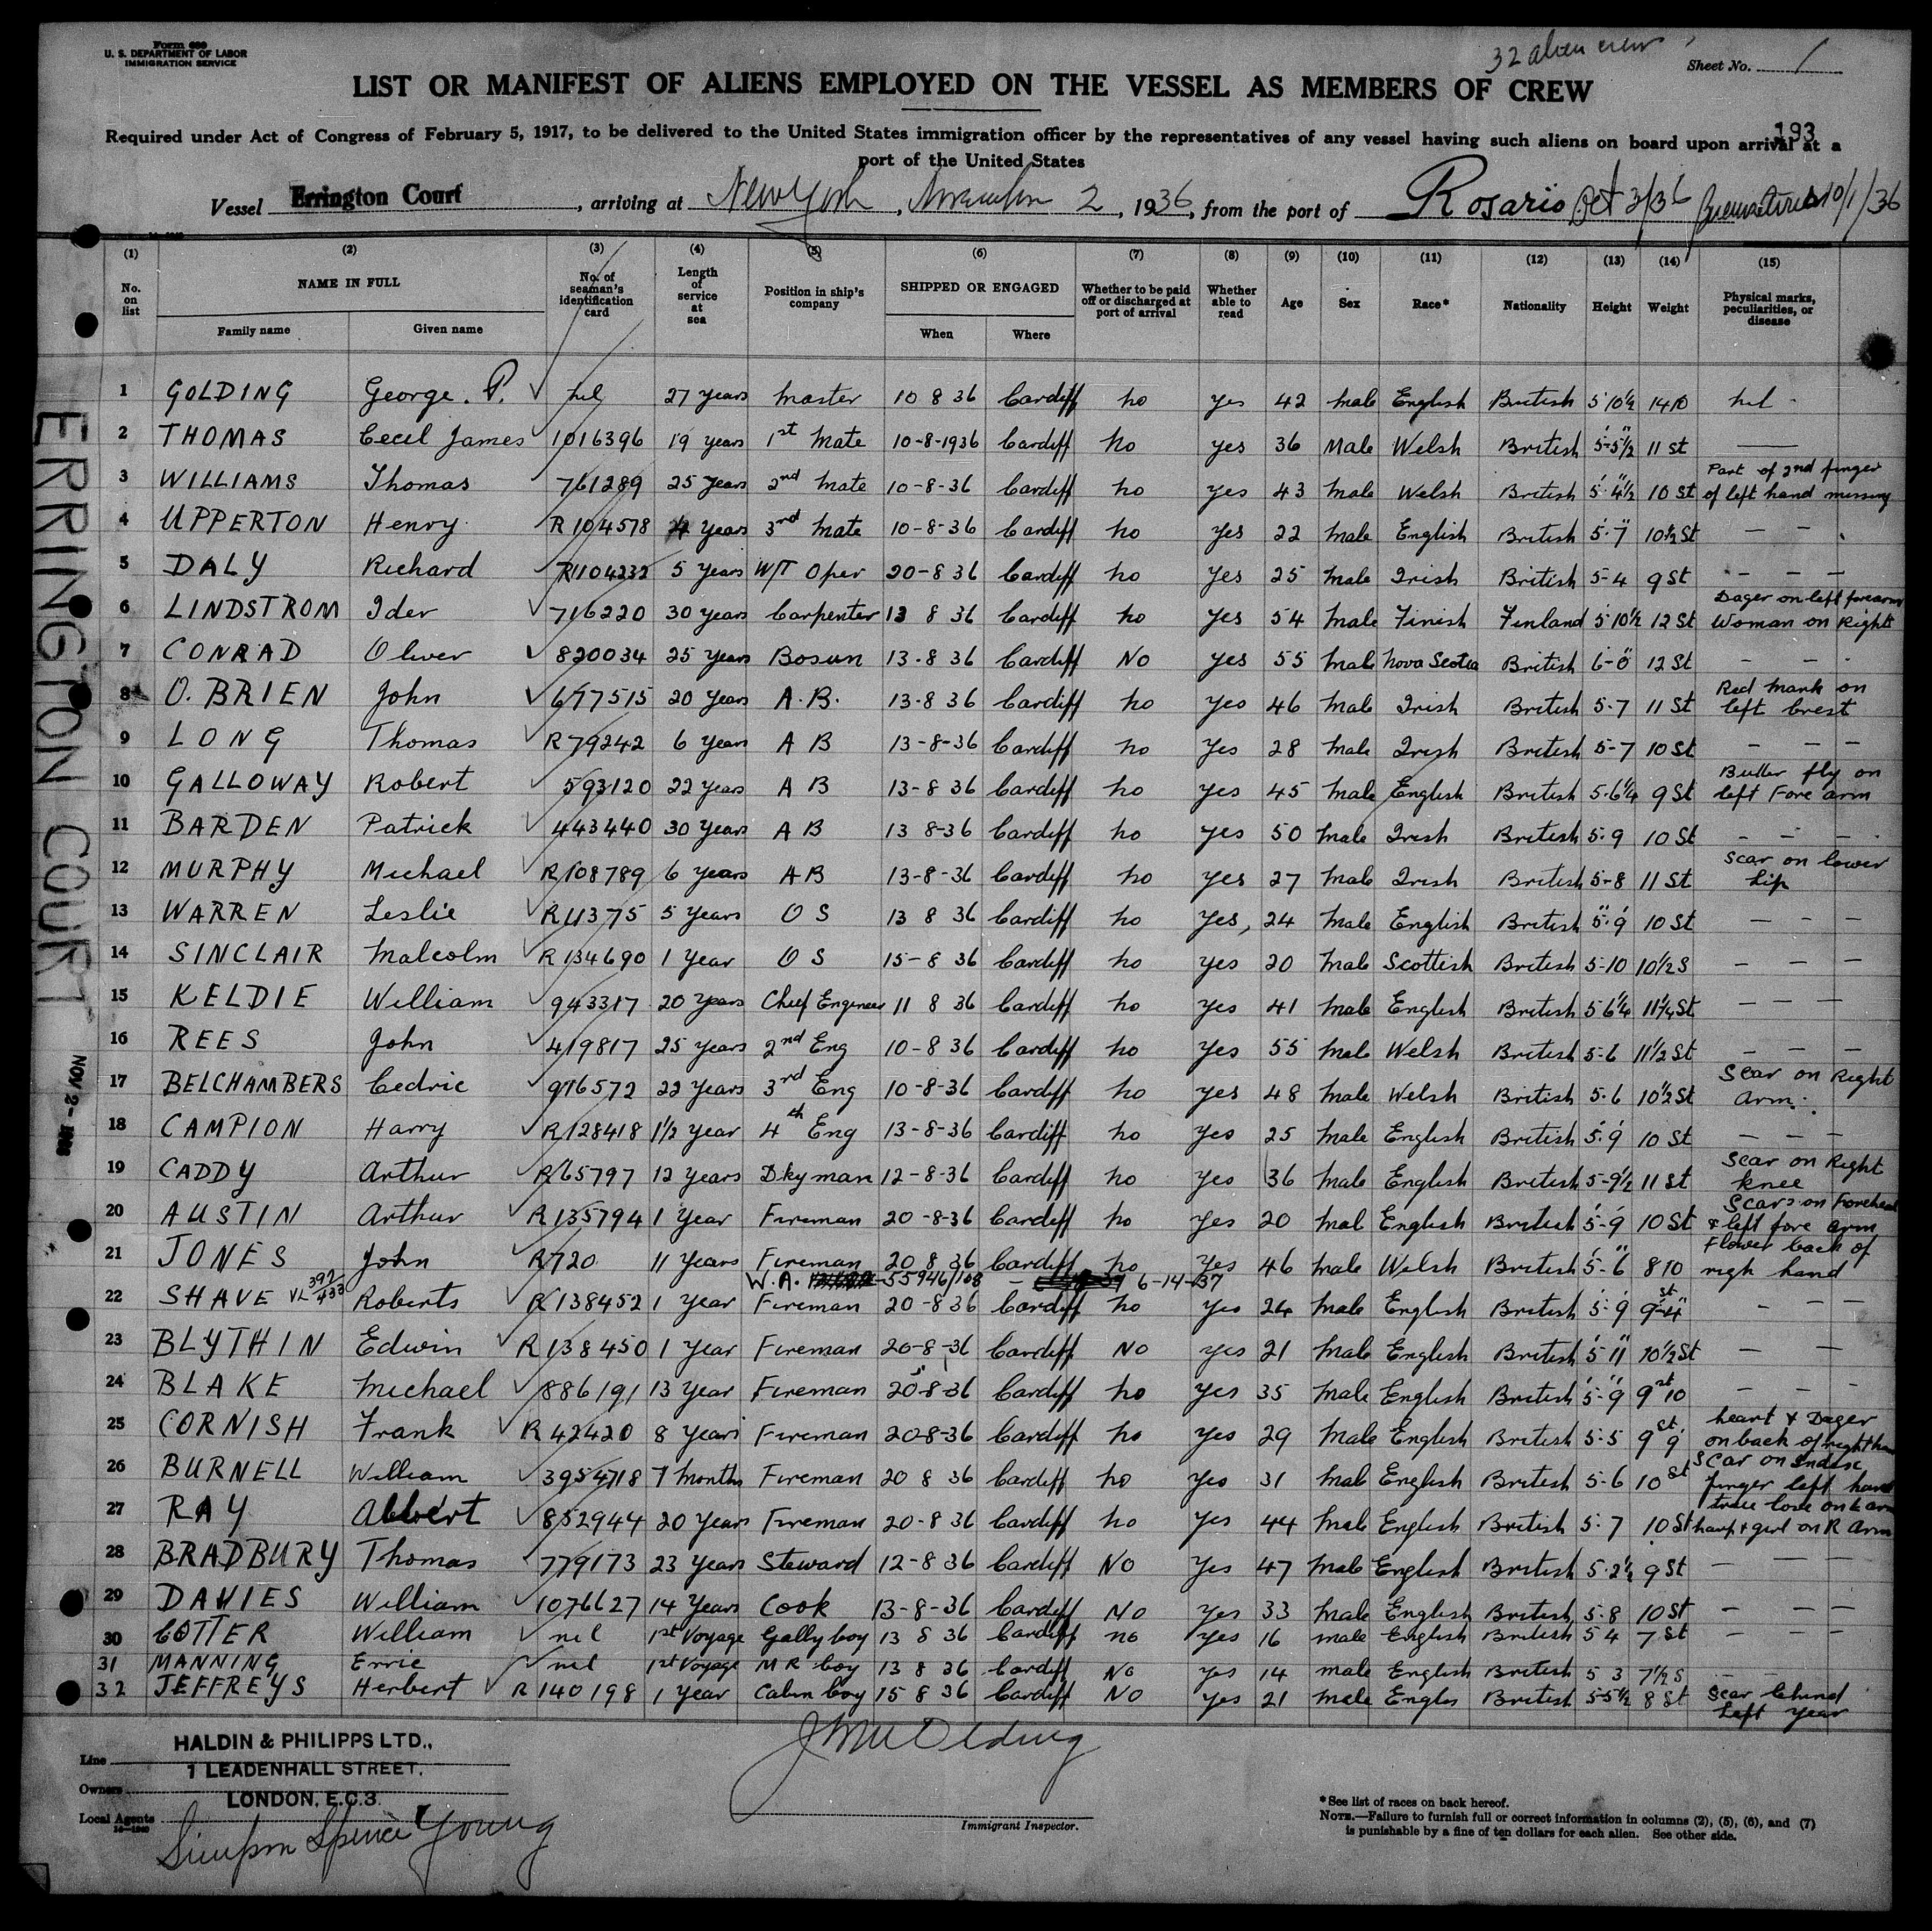 Form 680
U. S. DEPARTMENT OF LABOR
IMMIGRATION SERVICE
32 alien crew
Sheet No. 1
LIST OR MANIFEST OF ALIENS EMPLOYED ON THE VESSEL AS MEMBERS OF CREW
193
Required under Act of Congress of February 5, 1917, to be delivered to the United States immigration officer by the representatives of any vessel having such aliens on board upon arrival at a
port of the United States
Vessel Errington Court, arriving at New York, November 2, 1936, from the port of Rosario Oct 3/36 10/1/36
(1) (2) (3) (4) (5) (6) (7) (8) (9) (10) (11) (12) (13) (14) (15)
No. on list NAME IN FULL Family name Given name No. of seaman's identification card Length of service at sea Position in ship's company SHIPPED OR ENGAGED When Where Whether to be paid off or discharged at port of arrival Whether able to read Age Sex Race* Nationality Height Weight Physical marks, peculiarities, or disease
1 GOLDING George. P. nil 27 years Master 10 8 36 Cardiff no yes 42 male English British 5'10½ 14 10 nil
2 THOMAS Cecil James 1016396 19 years 1st Mate 10-8-1936 Cardiff no yes 36 Male Welsh British 5-5½ 11 st
3 WILLIAMS Thomas 761289 25 years 2nd Mate 10-8-36 Cardiff no yes 43 male Welsh British 5'4½ 10 St Part of 2nd finger of left hand missing
4 UPPERTON Henry R 104578 years 3rd Mate 10-8-36 Cardiff no yes 22 male English British 5-7 10½ St
5 DALY Richard R1104232 5 years W/T Oper 20-8 36 Cardiff no yes 25 male Irish British 5-4 9 St – – –
6 LINDSTROM Ider 716220 30 years Carpenter 13 8 36 Cardiff no yes 54 male Finish Finland 5'10½ 12 St Dager on left forearm Woman on Right
7 CONRAD Oliver 820034 25 years Bosun 13.8 36 Cardiff No yes 55 male Nova Scotia British 6-0 12 St – –
8 O. BRIEN John 677515 20 years A.B. 13-8 36 Cardiff no yes 46 male Irish British 5.7 11 St Red mark on left brest
9 LONG Thomas R 79242 6 years A B 13-8-36 Cardiff no yes 28 male Irish British 5-7 10 St – – –
10 GALLOWAY Robert 593120 22 years A B 13-8 36 Cardiff no yes 45 male English British 5.6¼ 9 St Butter fly on left Fore arm
11 BARDEN Patrick 443440 30 years A B 13 8-36 Cardiff no yes 50 male Irish British 5.9 10 St – – –
12 MURPHY Michael R 108789 6 years AB 13-8-36 Cardiff no yes 27 male Irish British 5-8 11 St Scar on lower lip
13 WARREN Leslie R 11375 5 years O S 13 8 36 Cardiff no yes, 24 male English British 5.9 10 St – – –
14 SINCLAIR Malcolm R 134690 1 year O S 15-8 36 Cardiff no yes 20 male Scottish British 5-10 10½ S – – –
15 KELDIE William 943317 20 years Chief Engineer 11 8 36 Cardiff no yes 41 male English British 5 6¼ 11¼ St – – –
16 REES John 419817 25 years 2nd Eng 10-8 36 Cardiff no yes 55 male Welsh British 5-6 11½ St – – –
17 BELCHAMBERS Cedric 916572 22 years 3rd Eng 10-8-36 Cardiff no yes 48 male Welsh British 5.6 10½ St Scar on Right arm.
18 CAMPION Harry R 128418 1½ year 4th Eng 13-8-36 Cardiff no yes 25 male English British 5.9 10 St – – –
19 CADDY Arthur R 65797 12 years Dkyman 12-8-36 Cardiff no yes 36 male English British 5-9½ 11 St Scar on Right knee
20 AUSTIN Arthur R 135794 1 year Fireman 20-8-36 Cardiff no yes 20 male English British 5-9 10 St Scars on Forehead & left fore arm
21 JONES John R 720 11 years Fireman 20 8 36 Cardiff no yes 46 male Welsh British 5-6 8 10 Flower back of righ hand
W.A. 55946/108 – 6-14-37
22 SHAVE VL 397/433 Roberts R 138452 1 year Fireman 20-8 36 Cardiff no yes 24 male English British 5-9 9st 4 – – –
23 BLYTHIN Edwin R 138450 1 year Fireman 20-8-36 Cardiff No yes 21 male English British 5-11 10½ St – –
24 BLAKE Michael 886191 13 year Fireman 20-8-36 Cardiff no yes 35 male English British 5-9 9st 10 – – –
25 CORNISH Frank R 42420 8 years Fireman 20-8-36 Cardiff no yes 29 male English British 5-5 9st 9 heart & Dager on back of right
26 BURNELL William 3954718 7 months Fireman 20 8 36 Cardiff no yes 31 male English British 5-6 10 st Scar on Index finger left hand
27 RAY Albert 852944 20 years Fireman 20-8 36 Cardiff no yes 44 male English British 5-7 10 St true love on L arm & girl on R arm
28 BRADBURY Thomas 779173 23 years Steward 12-8 36 Cardiff No yes 47 male English British 5.2½ 9 St – – –
29 DAVIES William 1076627 14 years Cook 13-8-36 Cardiff No yes 33 male English British 5.8 10 St – – –
30 COTTER William nil 1st Voyage Gally boy 13 8 36 Cardiff no yes 16 male English British 5 4 7 St – – –
31 MANNING Erric nil 1st Voyage M R boy 13 8 36 Cardiff No yes 14 male English British 5 3 7½ S
32 JEFFREYS Herbert R 140198 1 year Cabin boy 15 8 36 Cardiff No yes 21 male Englis British 5-5½ 8 St Scar behind left year
ERRINGTON COURT
NOV 2-
Line HALDIN & PHILIPPS LTD.,
1 LEADENHALL STREET,
Owners LONDON, E.C.3.
Local Agents Simpson Spence Young
Immigrant Inspector.
*See list of races on back hereof.
NOTE.—Failure to furnish full or correct information in columns (2), (5), (6), and (7)
is punishable by a fine of ten dollars for each alien. See other side.